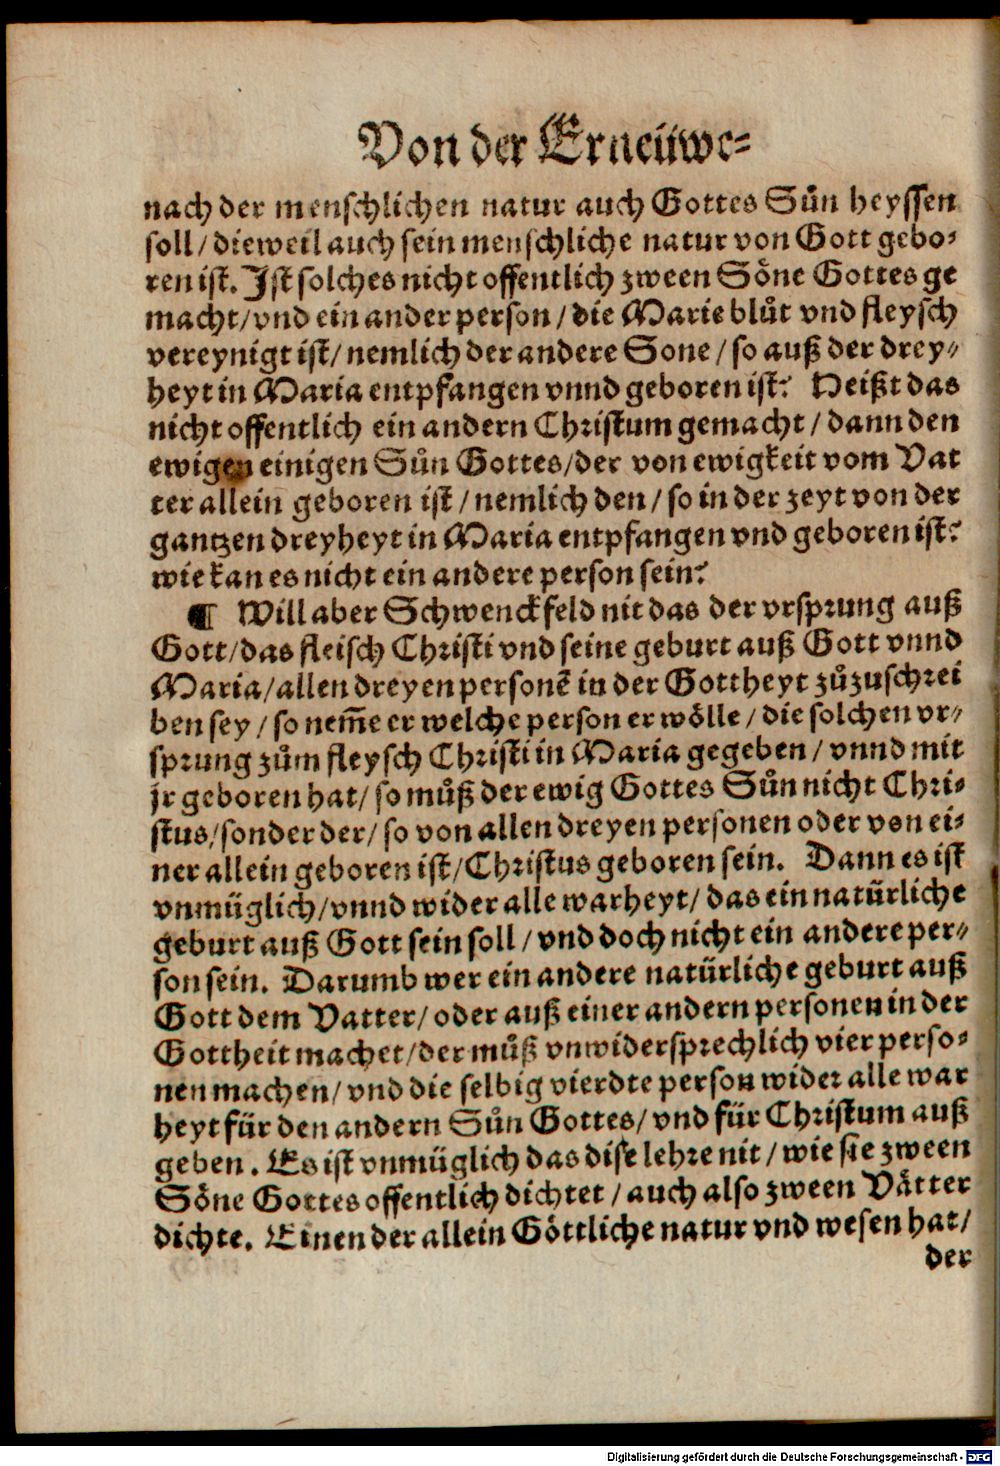 Von der Erneüwe-
nach der menschlichen natur auch Gottes Sůn heyssen
soll / dieweil auch sein menschliche natur von Gott gebo-
ren ist. Ist solches nicht offentlich zween Söne Gottes ge
macht / vnd ein ander person / die Marie blůt vnd fleysch
vereynigt ist / nemlich der andere Sone / so auß der drey-
heyt in Maria entpfangen vnnd geboren ist? Heißt das
nicht offentlich ein andern Christum gemacht / dann den
ewigen einigen Sůn Gottes / der von ewigkeit vom Vat
ter allein geboren ist / nemlich den / so in der zeyt von der
gantzen dreyheyt in Maria entpfangen vnd geboren ist?
wie kan es nicht ein andere person sein?
¶ Will aber Schwenckfeld nit das der vrsprung auß
Gott / das fleisch Christi vnd seine geburt auß Gott vnnd
Maria / allen dreyen personē in der Gottheyt zůzuschrei
ben sey / so nem̃e er welche person er wölle / die solchen vr-
sprung zům fleysch Christi in Maria gegeben / vnnd mit
jr geboren hat / so můß der ewig Gottes Sůn nicht Chri-
stus / sonder der / so von allen dreyen personen oder von ei-
ner allein geboren ist / Christus geboren sein. Dann es ist
vnmüglich / vnnd wider alle warheyt / das ein natürliche
geburt auß Gott sein soll / vnd doch nicht ein andere per-
son sein. Darumb wer ein andere natürliche geburt auß
Gott dem Vatter / oder auß einer andern personen in der
Gottheit machet / der můß vnwidersprechlich vier perso-
nen machen / vnd die selbig vierdte person wider alle war
heyt für den andern Sůn Gottes / vnd für Christum auß
geben. Es ist vnmüglich das dise lehre nit / wie sie zween
Söne Gottes offentlich dichtet / auch also zween Vätter
dichte. Einen der allein Göttliche natur vnd wesen hat /
der
Digitalisierung gefördert durch die Deutsche Forschungsgemeinschaft - DFG